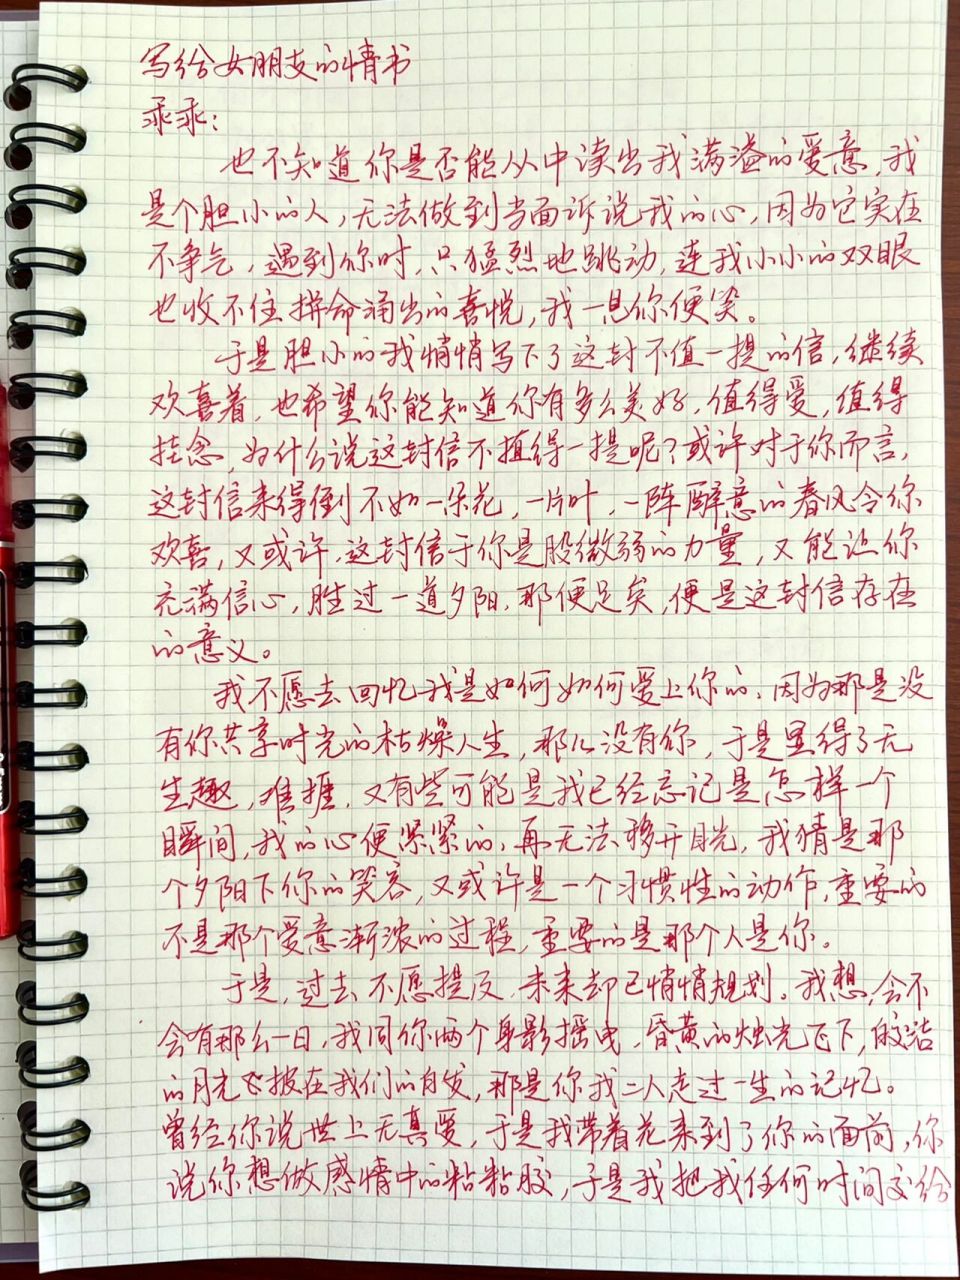 写给女朋友的情书
乖乖：
也不知道你是否能从中读出我满溢的爱意，我
是个胆小的人，无法做到当面诉说我的心，因为它实在
不争气，遇到你时，只猛烈地跳动，连我小小的双眼
也收不住拼命涌出的喜悦，我一见你便笑。
于是胆小的我悄悄写下了这封不值一提的信，继续
欢喜着，也希望你能知道你有多么美好，值得爱，值得
挂念，为什么说这封信不值得一提呢？或许对于你而言，
这封信来得倒不如一朵花，一片叶，一阵醉意的春风令你
欢喜，又或许，这封信于你是股微弱的力量，又能让你
充满信心，胜过一道夕阳，那便足矣，便是这封信存在
的意义。
我不愿去回忆我是如何如何爱上你的，因为那是没
有你共享时光的枯燥人生，那儿没有你，于是显得了无
生趣，难捱，又有些可能是我已经忘记是怎样一个
瞬间，我的心便紧紧的，再无法移开目光，我猜是那
个夕阳下你的笑容，又或许是一个习惯性的动作，重要的
不是那个爱意渐浓的过程，重要的是那个人是你。
于是，过去不愿提及，未来却已悄悄规划。我想，会不
会有那么一日，我同你两个身影摇曳，昏黄的烛光飞下，皎洁
的月光飞披在我们的白发，那是你我二人走过一生的记忆。
曾经你说世上无真爱，于是我带着花来到了你的面前，你
说你想做感情中的粘粘胶，于是我把我任何时间交给